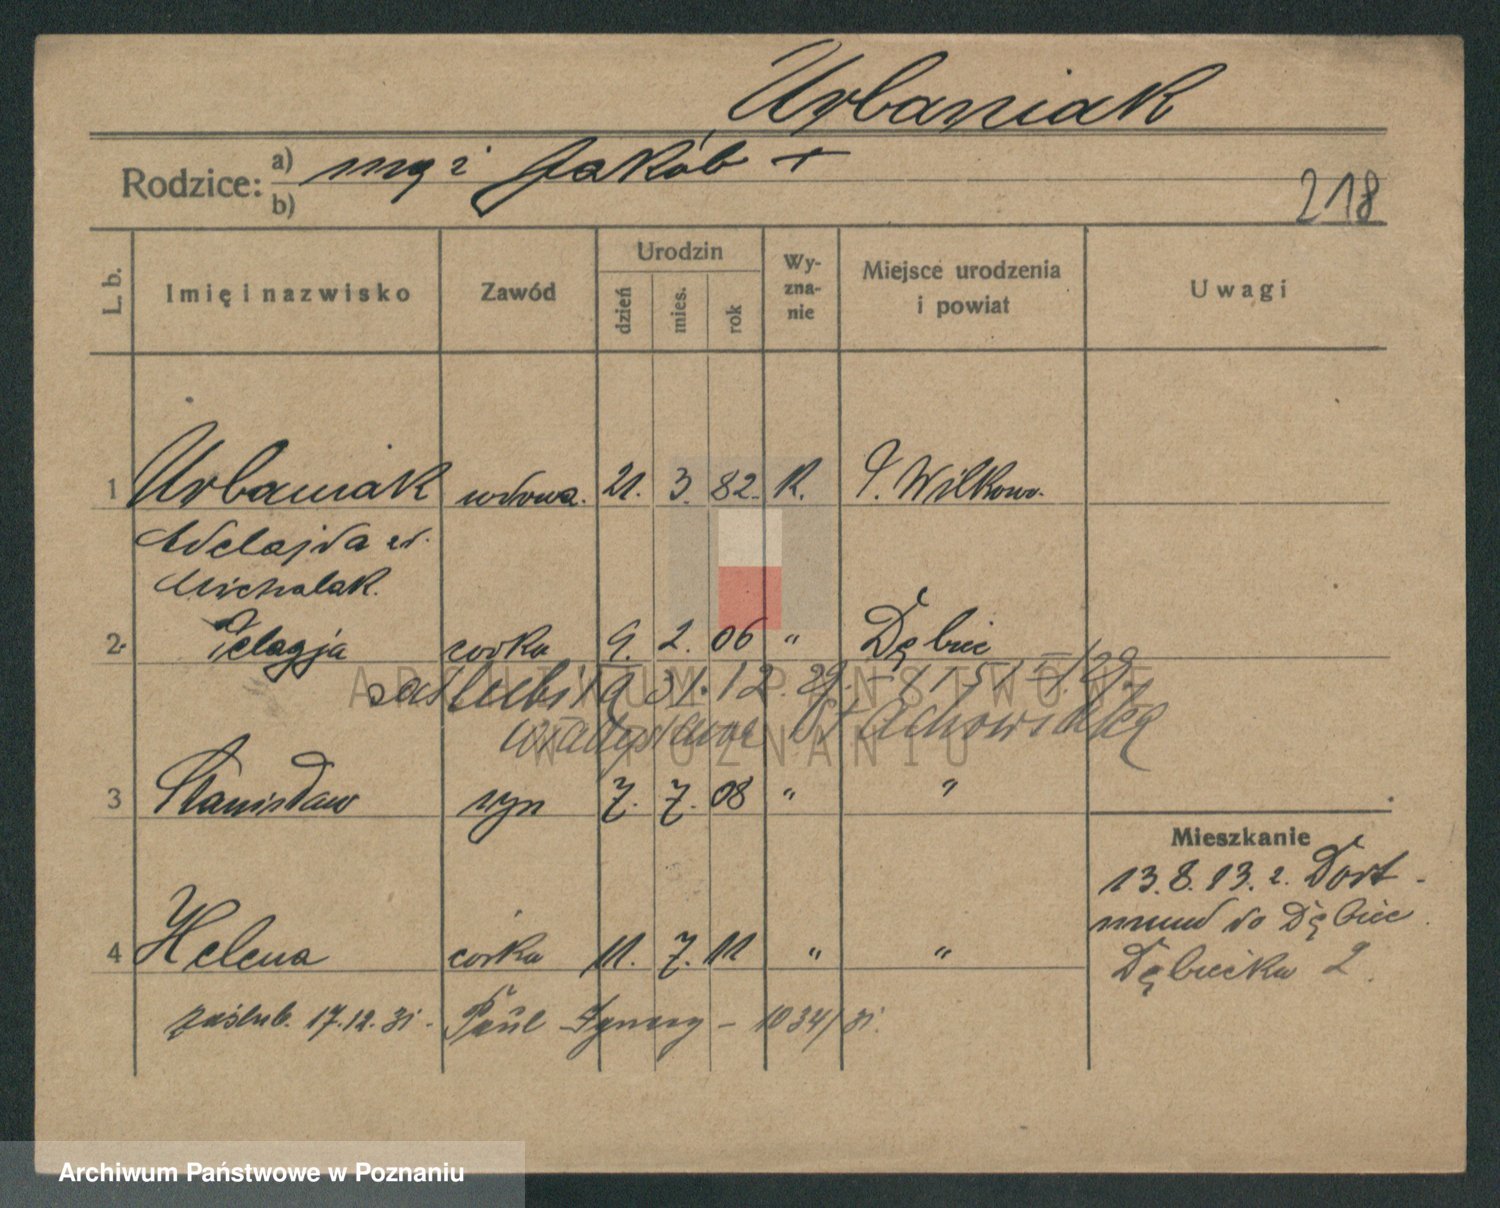 Urbaniak
Rodzice: a) mąż Jakób +
b)
218
L. b.
Imię i nazwisko
Zawód
Urodzin
dzień
mies.
rok
Wy-
zna-
nie
Miejsce urodzenia
i powiat
Uwagi
1 Urbaniak wdowa. 21. 3. 82. K. P. Wilkow.
Adelajda zd.
Michalak.
2. Pelagja corka 9. 2. 06 " Dębiec
zaślubiła 31.12.29. - 1151 /29.
Władysława Stachowiaka
3 Stanisław syn 7. 7. 08 " "
Mieszkanie
13.8.13. z. Dort-
mund do Dębiec.
Dębiecka 2.
4 Helena corka 11. 7. 11 " "
zaślub. 17.12.31. - Paul Ignacy - 1034/31.
ARCHIWUM PAŃSTWOWE
W POZNANIU
Archiwum Państwowe w Poznaniu